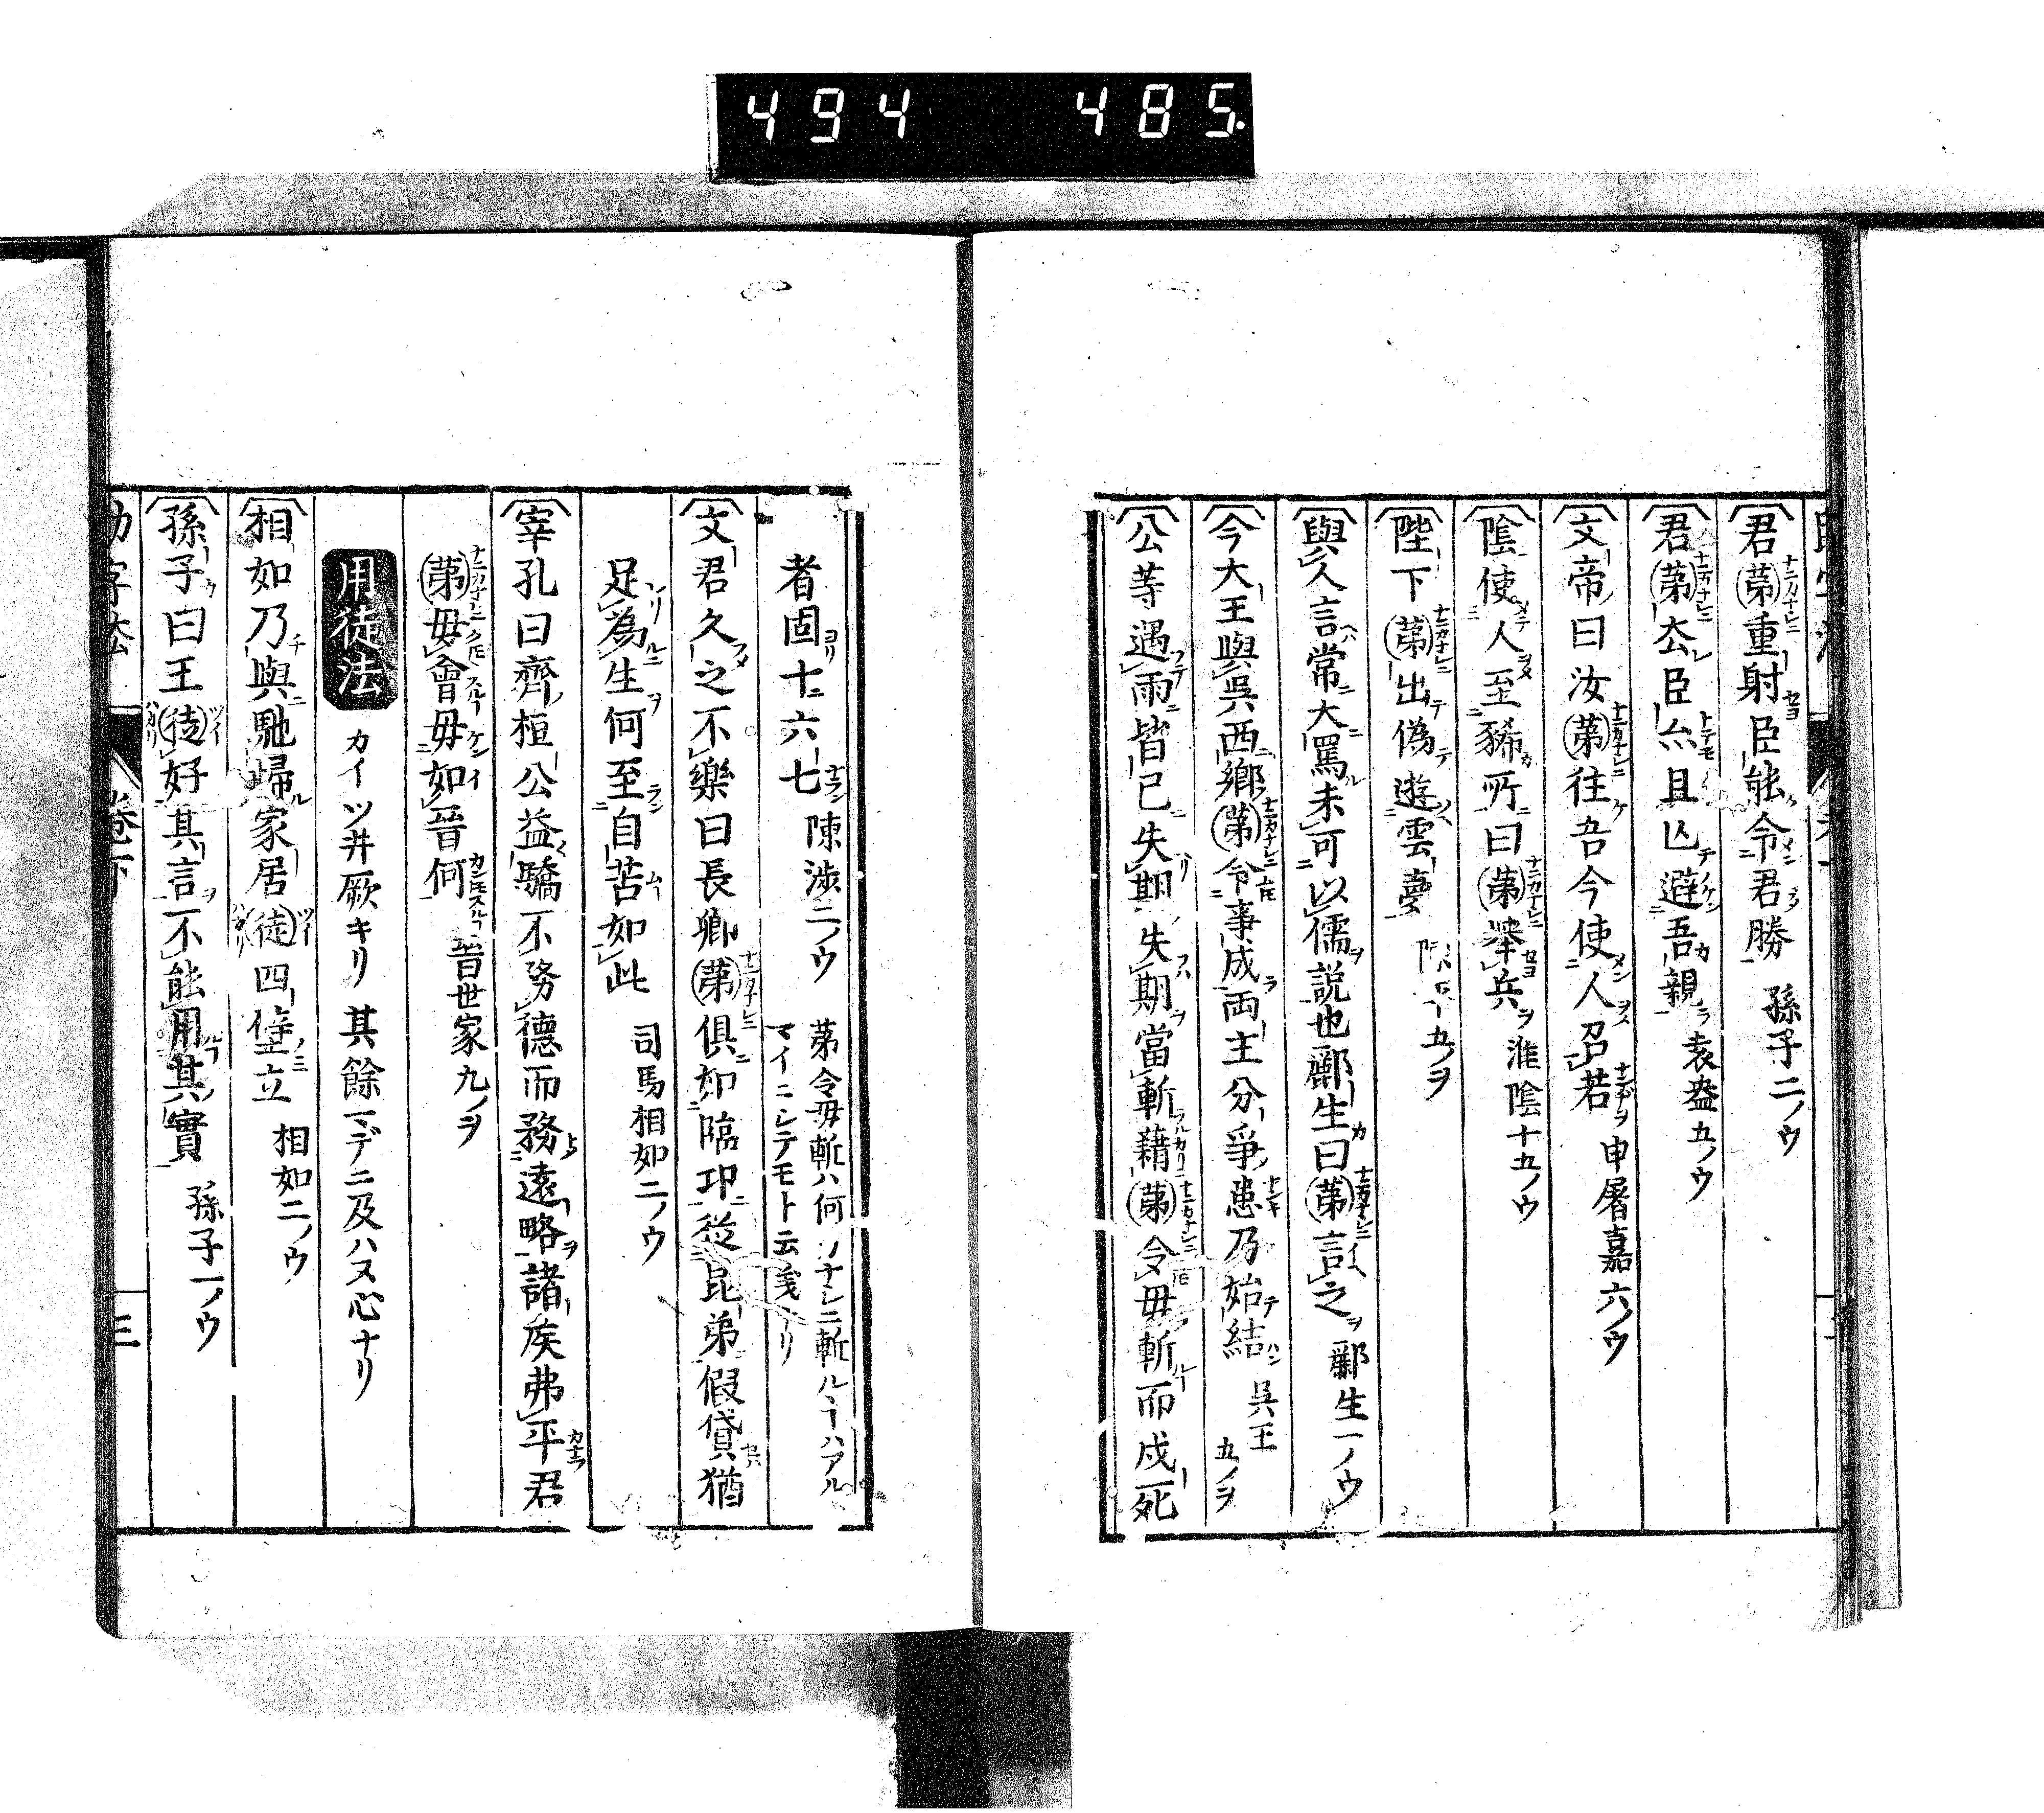 494 485.
君第重射臣能令君勝 孫子二ノウ
君第去臣亦且亡避吾親 袁盎五ノウ
文帝曰汝第往吾今使人召若 申屠嘉六ノウ
陰使人至豨所曰第举兵 淮陰十五ノウ
陛下第出偽遊雲夢 五ノヲ
與人言常大罵未可以儒説也酈生曰第言之 酈生一ノウ
今大王與呉西鄉第令事成両主分爭患乃始結 呉王五ノヲ
公等遇雨皆已失期失期當斬藉第令毋斬而戍死
者固十六七 陳渉二ノウ 第令毋斬ハ何ノナシニ斬ルヿハアルマイニシテモト云義ナリ
文君久之不樂曰長卿第俱如臨邛從昆弟假貸猶
足為生何至自苦如此 司馬相如二ノウ
宰孔曰齊桓公益驕不務德而務遠略諸侯弗平君
第毋會毋如晉何 晋世家九ノヲ
用徒法 カイツ井厥キリ其餘マデニ及ハヌ心ナリ
相如乃與馳歸家居徒四壁立 相如二ノウ
孫子曰王徒好其言不能用其實 孫子一ノウ
助字法 卷下 三